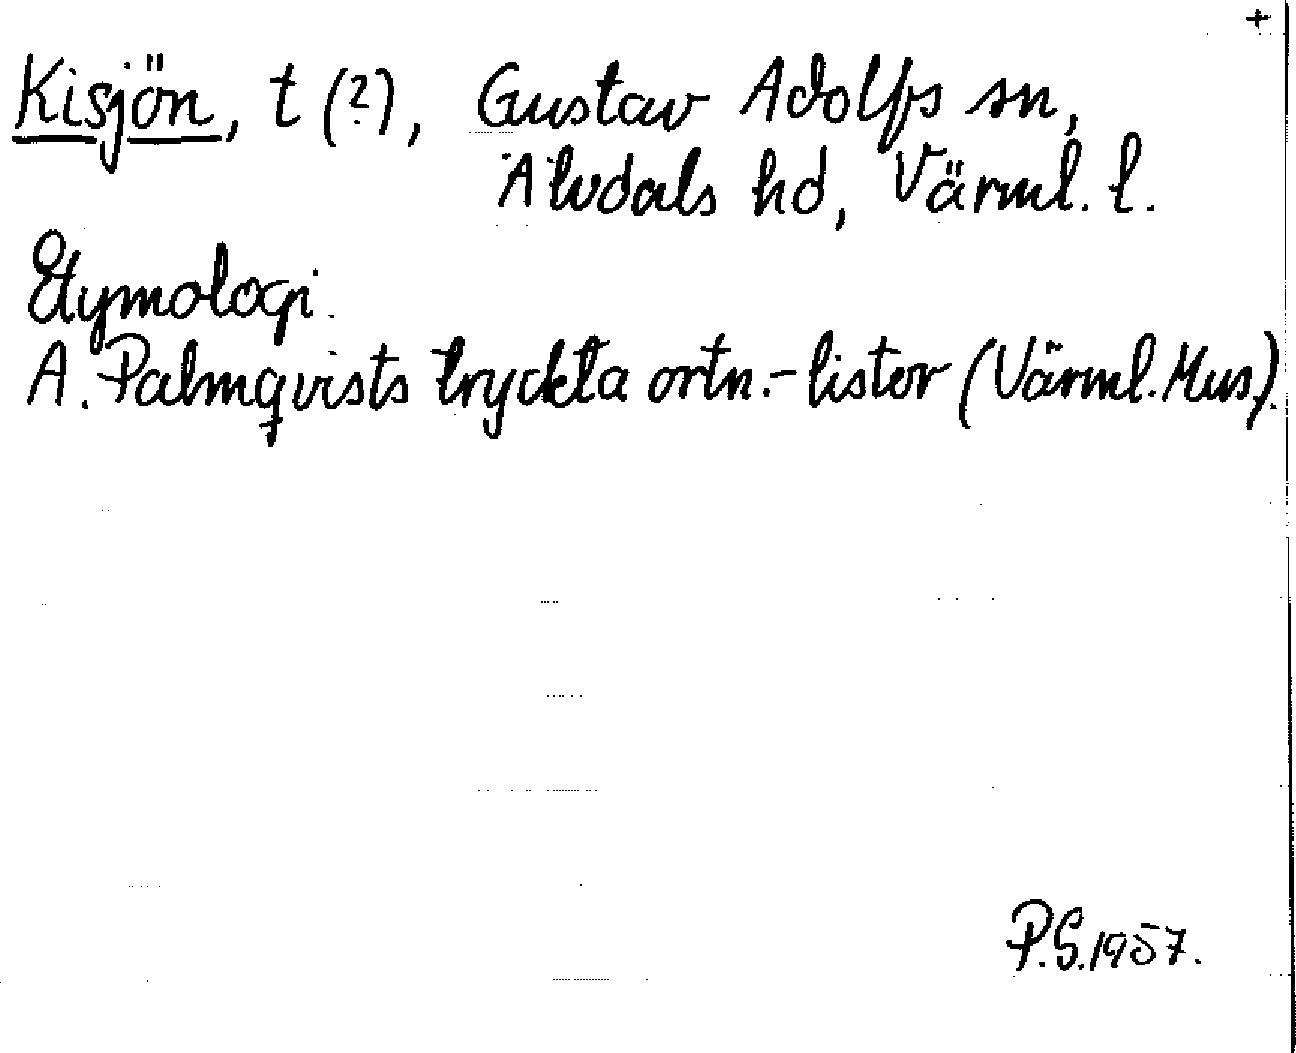 +
Kisjön, t (?), Gustav Adolfs sn,
Älvdals hd, Värml. l.
Etymologi.
A. Palmqvists tryckta ortn.-listor (Värml. Mus).
P.S. 1957.